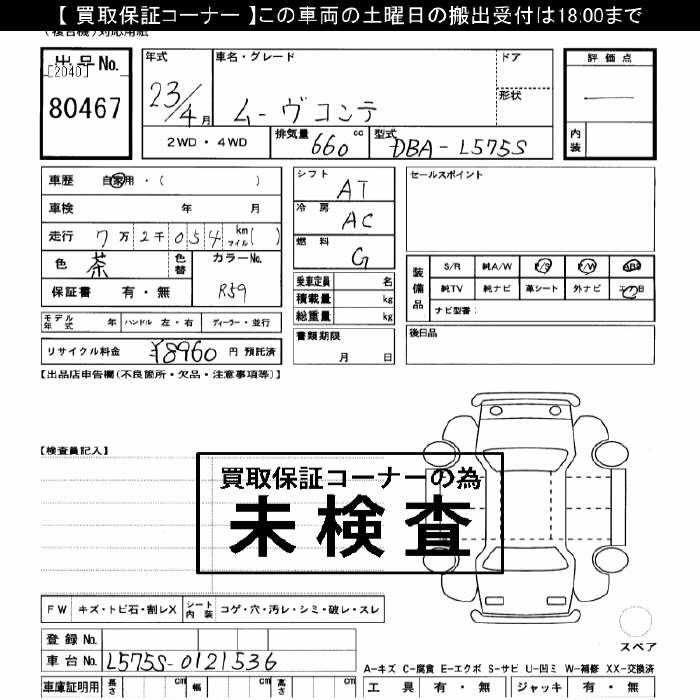 【 買取保証コーナー 】この車両の土曜日の搬出受付は18:00まで
(複合機)対応用紙
出品No.
[2040]
80467
年式
23/4月
車名・グレード
ムーヴコンテ
ドア
形状
評価点
内装
2WD・4WD
排気量 660 cc
型式 DBA-L575S
車歴 自家用・( )
車検 年 月
走行 7万2千054 km マイル( )
色 茶 色替
カラーNo. R59
保証書 有・無
モデル年式 年 ハンドル 左・右 ディーラー・並行
リサイクル料金 ¥8960 円 預託済
シフト AT
冷房 AC
燃料 G
乗車定員 名
積載量 kg
総重量 kg
書類期限 月 日
セールスポイント
装備品
S/R 純A/W P/S P/W ABS
純TV 純ナビ 革シート 外ナビ エアB
ナビ型番:
後日品
【出品店申告欄(不良箇所・欠品・注意事項等)】
【検査員記入】
買取保証コーナーの為
未検査
FW キズ・トビ石・割レX シート内装 コゲ・穴・汚レ・シミ・破レ・スレ
スペア
登録No.
車台No. L575S-0121536
車庫証明用 長さ cm 幅 cm 高さ cm
A-キズ C-腐食 E-エクボ S-サビ U-凹ミ W-補修 XX-交換済
工具 有・無 ジャッキ 有・無